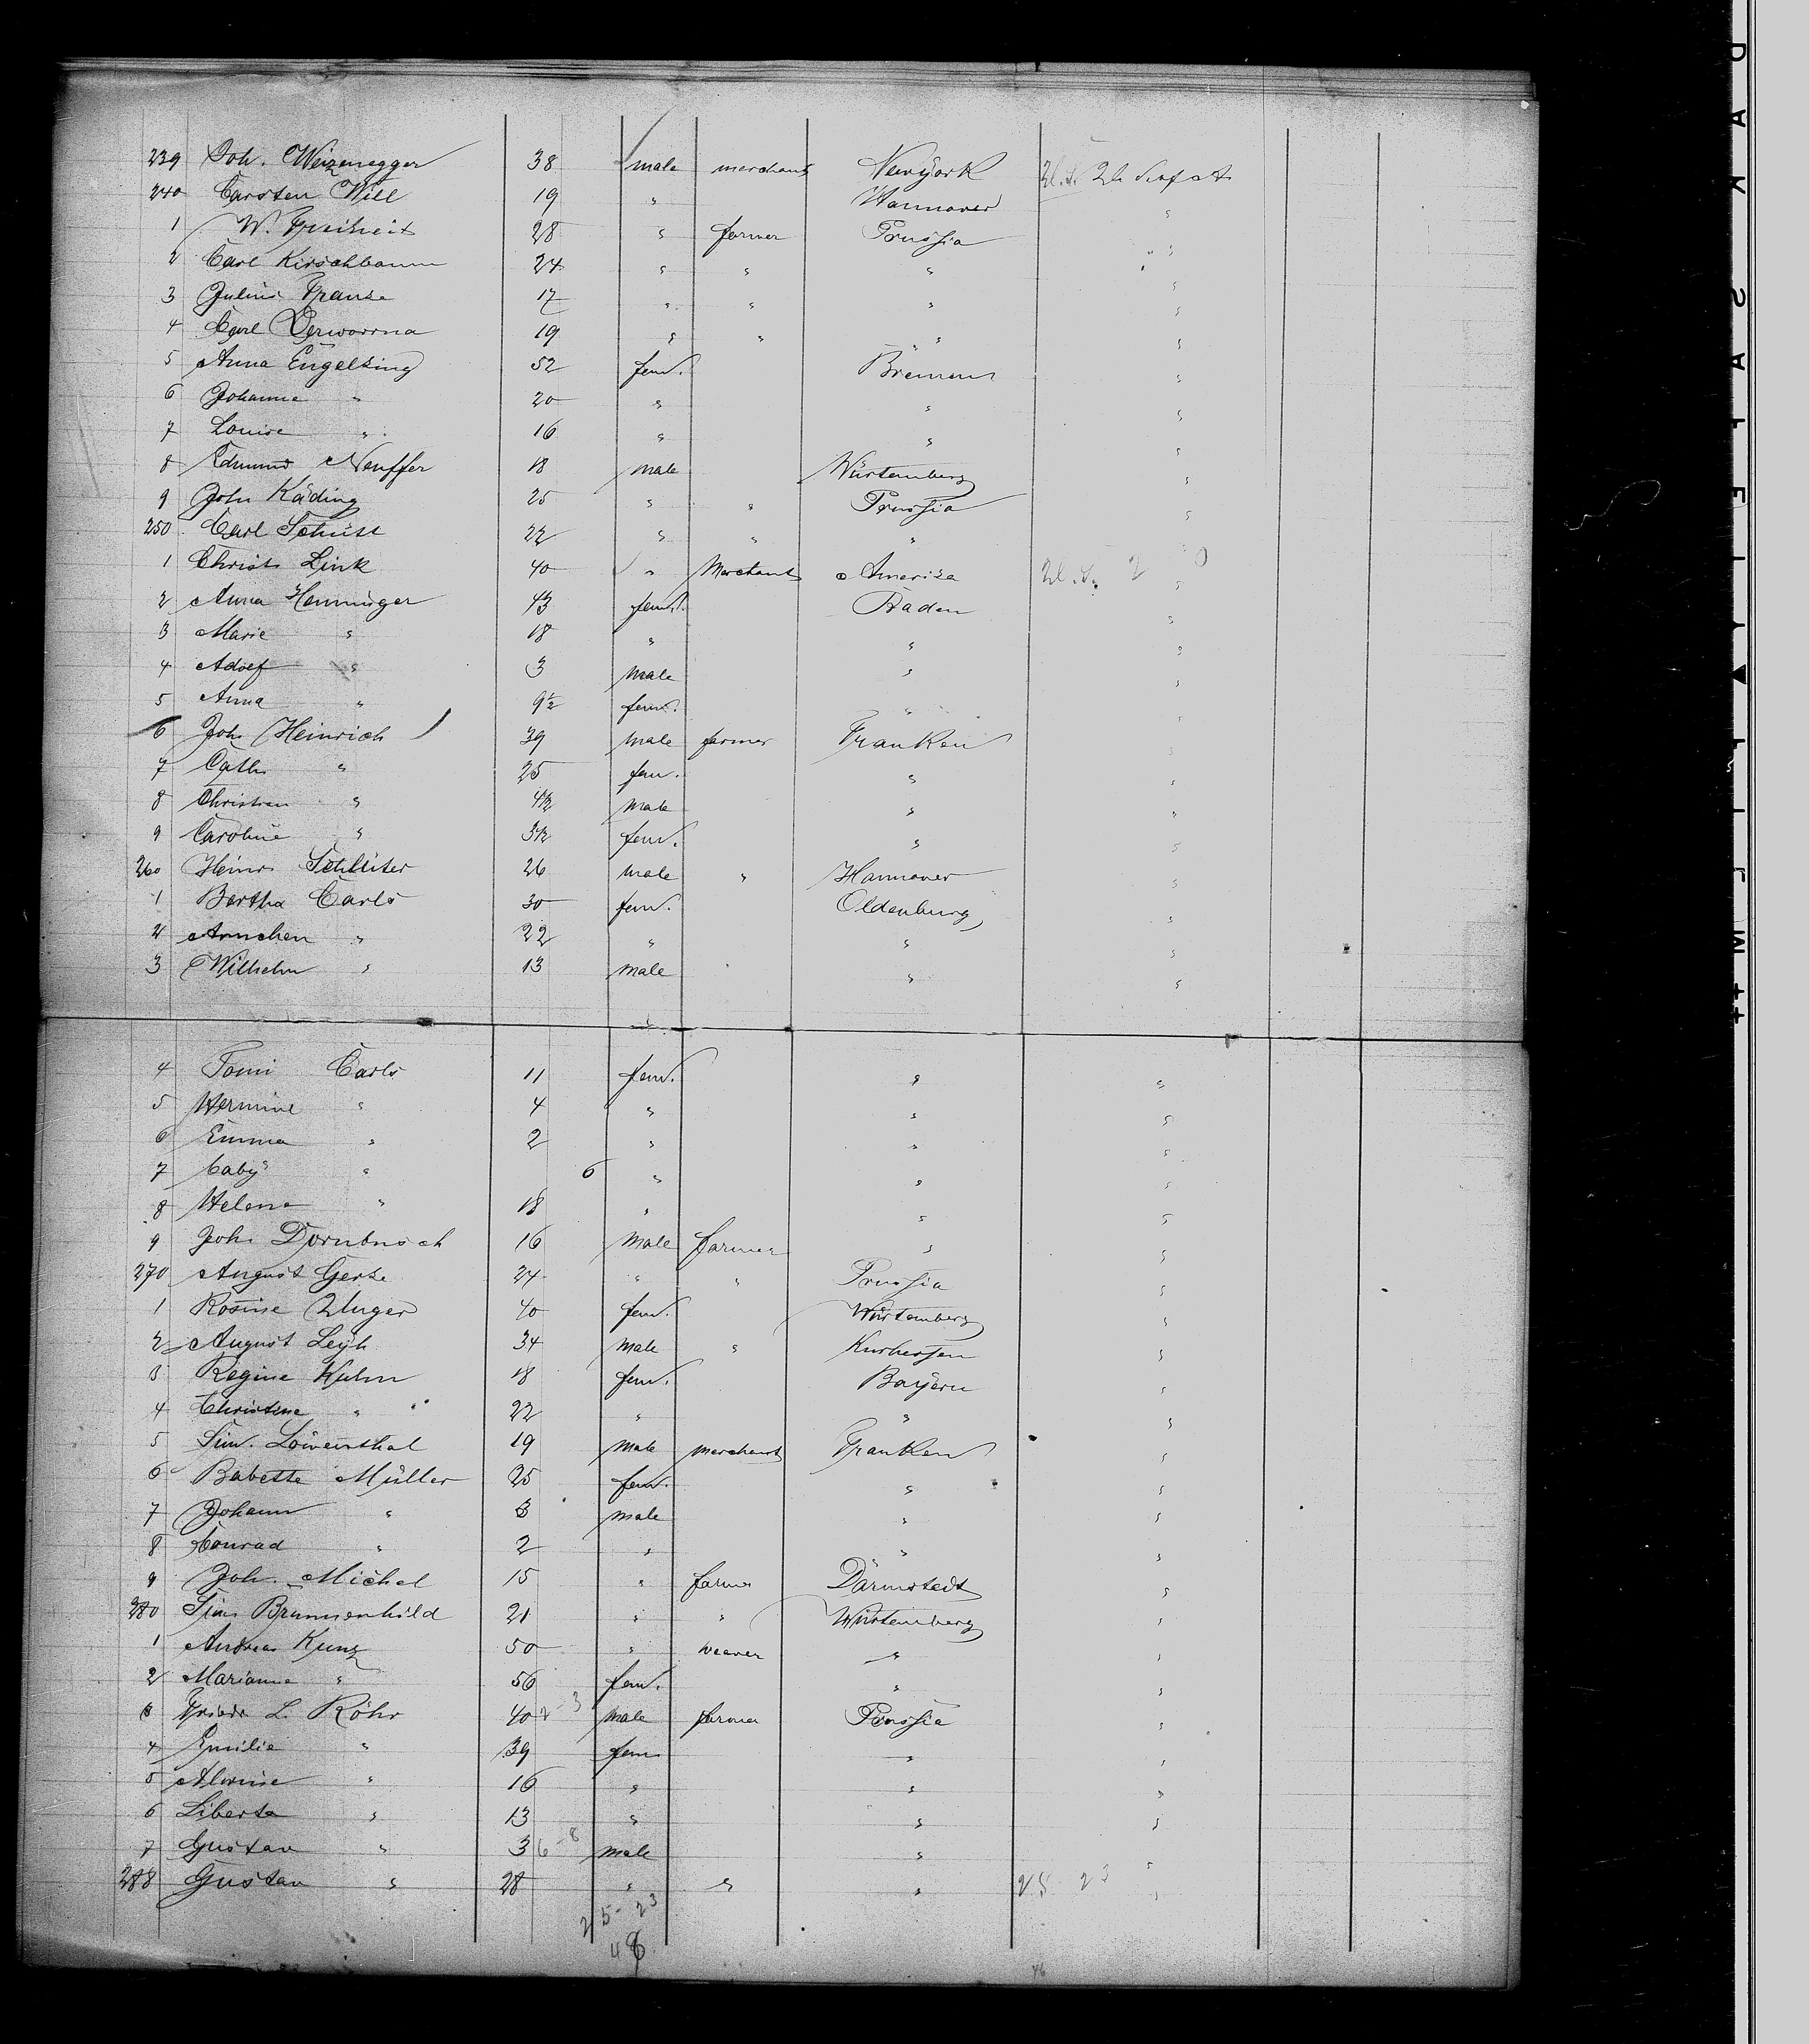 239 Joh. Weizenegger 38 male merchant Newÿork U.S.
240 Carsten Will 19 " Hannover "
1 W. Freiheit 28 " farmer Prussia "
2 Carl Kirschbaum 24 " " " "
3 Julius 17 " " " "
4 Carl 19 " " " "
5 Anna Engelking 52 fem. Bremen "
6 Johanne " 20 " " "
7 Louise " 16 " " "
8 Edmund Neuffer 18 male Würtemberg "
9 John Käding 25 " " Prussia "
250 Carl Schütt 22 " " " "
1 Christ. Link 40 " Merchant America U.S. "
2 Anna Henninger 43 fem. Baden "
3 Marie " 18 " " "
4 Adolf " 3 male " "
5 Anna " 9½ fem. " "
6 Joh. Heinrich 39 male farmer Franken "
7 Cath. " 25 fem. " "
8 Christian " 4½ male " "
9 Caroline " 3½ fem. " "
260 Heinr. Schlüter 26 male " Hannover "
1 Bertha Carls 30 fem. Oldenburg "
2 Annchen " 22 " " "
3 Wilhelm " 13 male " "
4 Toni Carls 11 fem. " "
5 Hermine " 4 " " "
6 Emma " 2 " " "
7 baby " 6 " " "
8 Helene " 18 " " "
9 Joh. Dornbusch 16 Male farmer " "
270 August Gerke 24 " " Prussia "
1 Rosine Unger 40 fem. Würtemberg "
2 August Leÿh 34 Male " Kurhessen "
3 Regine Kuhn 18 fem. Bayern "
4 Christine " 22 " " "
5 Sim. Löwenthal 19 Male merchant Franken "
6 Babette Müller 25 fem. " "
7 Johann " 3 male " "
8 Conrad " 2 " " "
9 Joh. Michel 15 " farmer Darmstedt "
280 Brunnenhild 21 " " Würtemberg "
1 Andreas Kunz 50 " weaver " "
2 Marianne " 56 fem. " "
3 Friedr. L. Röhr 40 male farmer Prussia "
4 Emilie " 39 fem " "
5 Alwine " 16 " " "
6 Liberta " 13 " " "
7 Gustav " 3 male " "
288 Gustav " 28 " " " 25 23 "
25-23
48